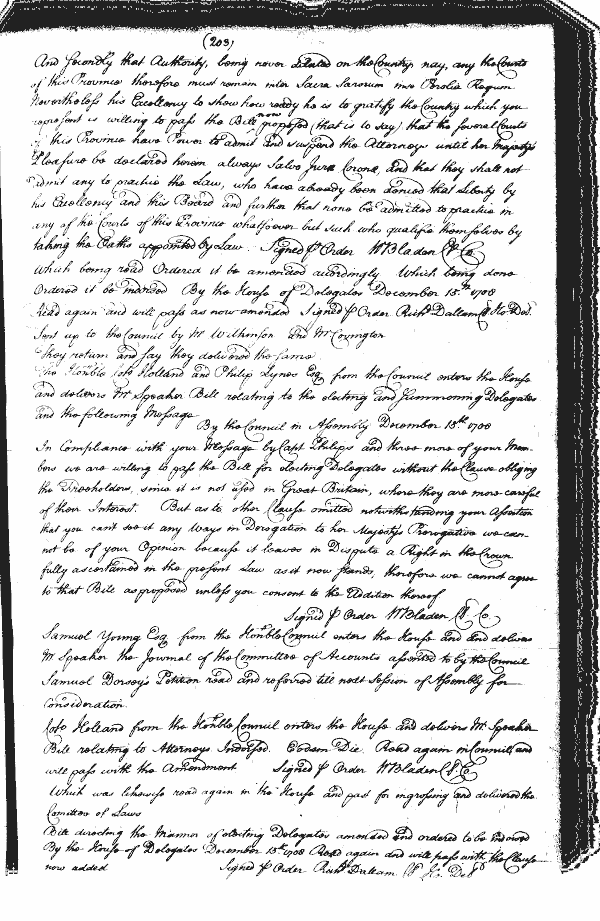 (203)
And Secondly that Authority, being never debated on the Country, nay, any the Courts
of this Province therefore must remain inter Sacra Sacrorum Regum
Nevertheless his Excellency to show how ready he is to gratify the Country which you
represent is willing to pass the Bill now proposed (that is to say) that the several Courts
of this Province have Power to admit and suspend the Attorneys until her Majestys
Pleasure be declared herein always Salvo Jure Coronæ, and that they shall not
admit any to practice the Law, who have already been denied that Liberty by
his Excellency and this Board and further that none be admitted to practice in
any of the Courts of this Province whatsoever but such who qualifie themselves by
taking the Oaths appointed by Law. Signed p Order W Bladen Cl. Co.
Which being read Ordered it be amended accordingly Which being done
Ordered it be indorsed By the House of Delegates December 15.th 1708
Read again and will pass as now amended Signed p Order Richd Dallam Cl Ho. Del.
Sent up to the Council by Mr Wilkinson and Mr Covington
They return and say they delivered the same
The Honble Coto Holland and Philip Lynes Esq. from the Council enters the House
and delivers Mr Speaker Bill relating to the electing and Summoning Delegates
and the following Message
By the Council in Assembly December 15th 1708
In Compliance with your Message by Capt Philips and three more of your Mem-
bers we are willing to pass the Bill for electing Delegates without the Clause obliging
the Freeholders, since it is not used in Great Britain, where they are more careful
of their Interest. But as to other Clause omitted notwithstanding your Assertion
that you can't see it any Ways in Derogation to her Majestys Prerogative we can-
not be of your Opinion because it leaves in Dispute a Right in the Crown
fully ascertained in the present Law as it now stands, therefore we cannot agree
to that Bill as proposed unless you consent to the Addition thereof
Signed p Order W Bladen Cl. Co.
Samuel Young Esq. from the Honble Council enters the House and and delivers
Mr Speaker the Journal of the Committee of Accounts assented to by the Council
Samuel Dorsey's Petition read and referred till next Session of Assembly for
Consideration.
Coto Holland from the Honble Council enters the House and delivers Mr Speaker
Bill relating to Attorneys Indorsed. Eodem Die. Read again in Council and
will pass with the Amendment Signed p Order W Bladen Cl. Co.
Which was likewise read again in the House and past for ingrossing and delivered the
Comittee of Laws
Bill directing the Manner of electing Delegates amended and ordered to be Indorsed
By the House of Delegates December 15th 1708 Read again and will pass with the Clause
now added Signed p Order Richd Dallam Cl Ho. Deld